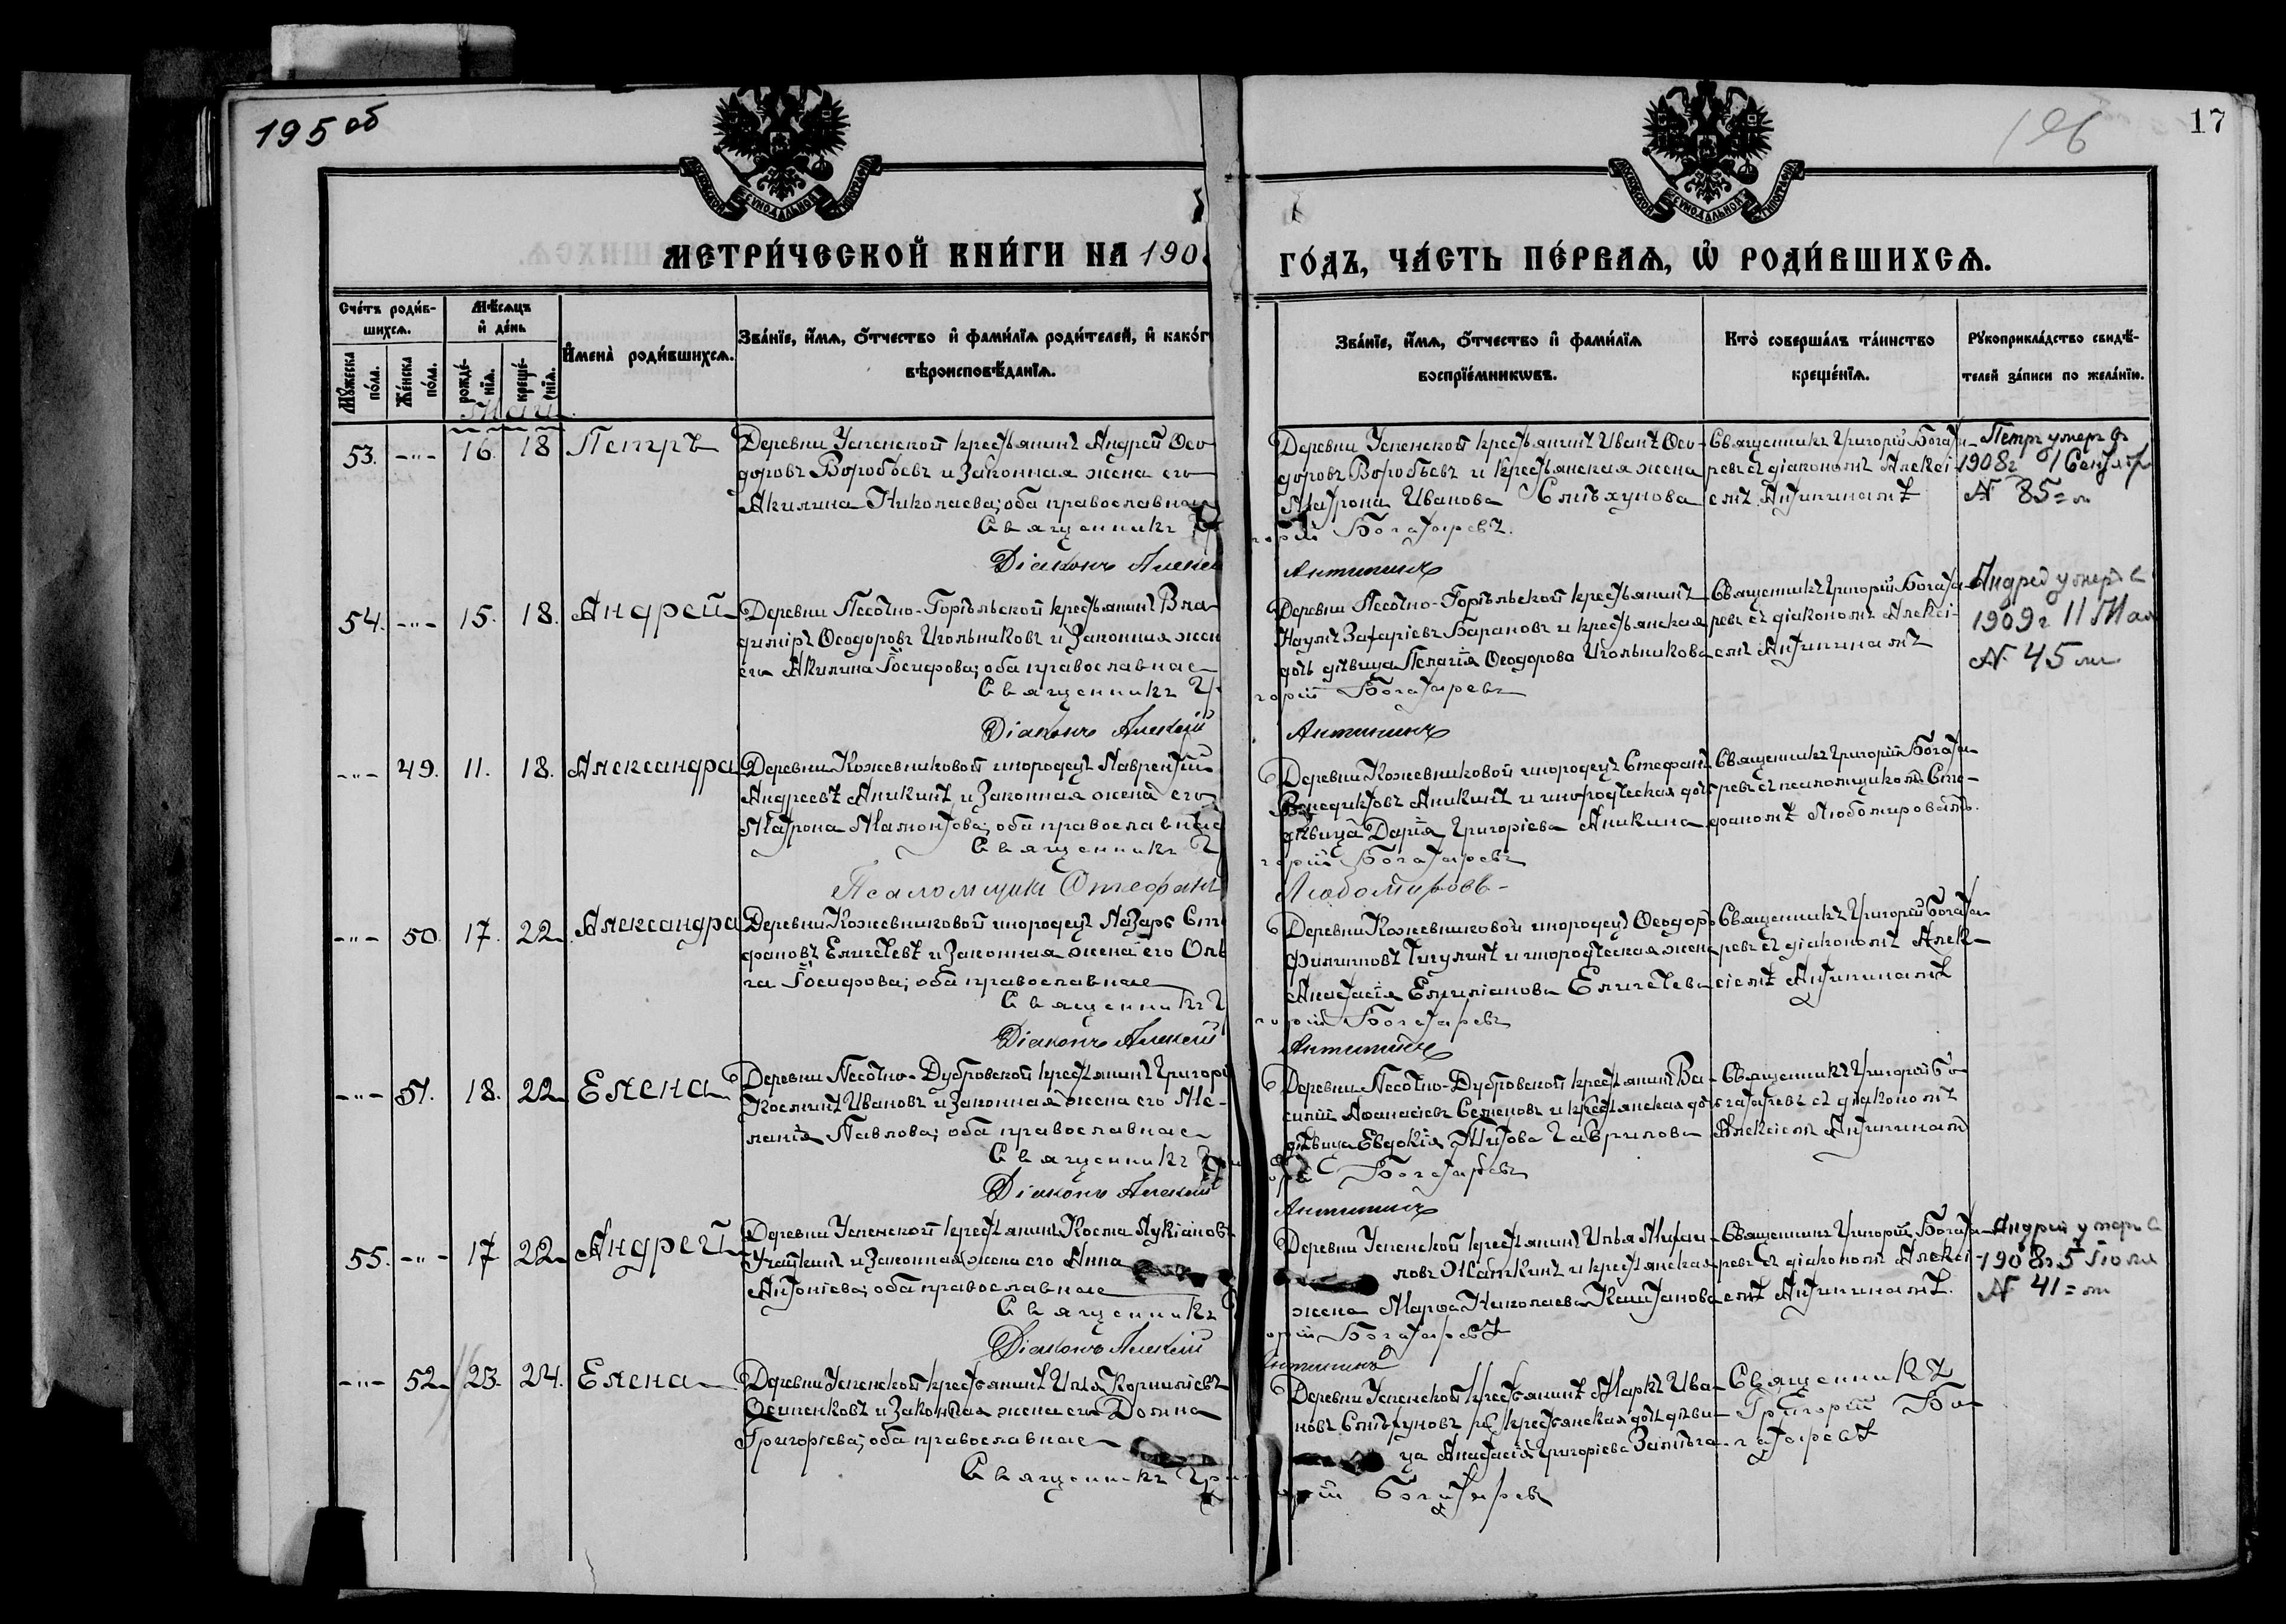 195 об
17
196
МОСКОВСКОЙ СѴНОДАЛЬНОЙ ТИПОГРАФІИ
МОСКОВСКОЙ СѴНОДАЛЬНОЙ ТИПОГРАФІИ
МЕТРИ́ЧЕСКОЙ КНИ́ГИ НА 190
ГО́ДЪ, ЧА́СТЬ ПЕ́РВАѦ, Ѡ҆ РОДИ́ВШИХСѦ.
Сче́тъ роди́в-
шихсѧ.
Мꙋ́жеска по́ла.
Же́нска по́ла.
Мѣ́сѧцъ
и҆ де́нь
рожде́-
нїѧ.
креще́-
нїѧ.
И҆мена̀ роди́вшихсѧ.
Зва́нїе, и҆́мѧ, ѻ҆́тчество и҆ фами́лїѧ роди́телей, и҆ како́г
вѣроисповѣ́данїѧ.
Зва́нїе, и҆́мѧ, ѻ҆́тчество и҆ фами́лїѧ
воспрїе́мникѡвъ.
Кто̀ соверша́лъ та́инство
креще́нїѧ.
Рꙋкоприкла́дство свидѣ́-
телей за́писи по жела́нїю.
Мая
53. -"- 16. 18 Петръ
Деревни Успенской крестьянинъ Андрей Ѳео-
доровъ Воробьевъ и законная жена его
Акилина Николаева; оба православные
Священникъ Гри
Діаконъ Алексій
Деревни Успенской крестьянинъ Иванъ Ѳео-
доровъ Воробьевъ и крестьянская жена
Матрона Иванова Смѣхунова
горій Богатыревъ.
Антипинъ
Священникъ Григорій Богаты-
ревъ съ діакономъ Алексі-
емъ Антипинымъ
Петръ умеръ въ
1908 г 1 Сентября
№ 85 = м
54. -"- 15. 18. Андрей
Деревни Песочно-Горѣльской крестьянинъ Вла-
диміръ Ѳеодоровъ Игольниковъ и законная жена
его Акилина Іосифова; оба православные
Священникъ Гр
Діаконъ Алексій
Деревни Песочно-Горѣльской крестьянинъ
Наумъ Захаріевъ Барановъ и крестьянская
дочь дѣвица Пелагія Ѳеодорова Игольникова
горій Богатыревъ
Антипинъ
Священникъ Григорій Богаты-
ревъ съ діакономъ Алексі-
емъ Антипинымъ
Андрей умеръ въ
1909 г 11 Мая
№ 45 м
-"- 49. 11. 18. Александра
Деревни Кожевниковой инородецъ Лаврентій
Андреевъ Аникинъ и законная жена его
Матрона Мамонтова; оба православные
Священникъ Г
Псаломщикъ Стефанъ
Деревни Кожевниковой инородецъ Стефанъ
Венедиктовъ Аникинъ и инородческая дочь
дѣвица Дарія Григоріева Аникина
горій Богатыревъ
Любомировъ
Священникъ Григорій Богаты-
ревъ съ псаломщикомъ Сте-
фаномъ Любомировымъ.
-"- 50. 17. 22. Александра
Деревни Кожевниковой инородецъ Лазарь Сте
фановъ Еличевъ и законная жена его Оль
га Іосифова; оба православные
Священникъ Г
Діаконъ Алексій
Деревни Кожевниковой инородецъ Ѳеодоръ
Филипповъ Тигулинъ и инородческая жена
Анастасія Емиліанова Еличева
горій Богатыревъ
Антипинъ
Священникъ Григорій Богаты-
ревъ съ діакономъ Алек-
сіемъ Антипинымъ
-"- 51. 18. 22 Елена
Деревни Песочно-Дубровской крестьянинъ Григорій
Косминъ Ивановъ и законная жена его Ме-
ланія Павлова; оба православные
Священникъ Гри
Діаконъ Алексій
Деревни Песочно-Дубровской крестьянинъ Ва-
силій Аѳанасіевъ Семеновъ и крестьянская дочь
дѣвица Евдокія Титова Гаврилова
горій Богатыревъ
Антипинъ
Священникъ Григорій Бо-
гатыревъ съ діакономъ
Алексіемъ Антипинымъ
55. -"- 17 22 Андрей
Деревни Успенской крестьянинъ Косма Лукіановъ
и законная жена его Анна
Антоніева; оба православные
Священникъ
Діаконъ Алексій
Деревни Успенской крестьянинъ Илья
и крестьянская
жена Марѳа Николаева Каштанова
горій Богатыревъ
Антипинъ
Священникъ Григорій Богаты-
ревъ съ діакономъ Алексі-
емъ Антипинымъ.
Андрей умеръ въ
1908 г 5 Іюля
№ 41 = м
-"- 52 23. 24. Елена
Деревни Успенской крестьянинъ Илья Корниліевъ
Осипенковъ и законная жена его Домна
Григоріева; оба православные
Священникъ Гри
Деревни Успенской крестьянинъ Маркъ Ива-
новъ Смѣхуновъ и крестьянская дочь дѣви-
ца Анастасія Григоріева
горій Богатыревъ
Священникъ
Григорій Бо-
гатыревъ